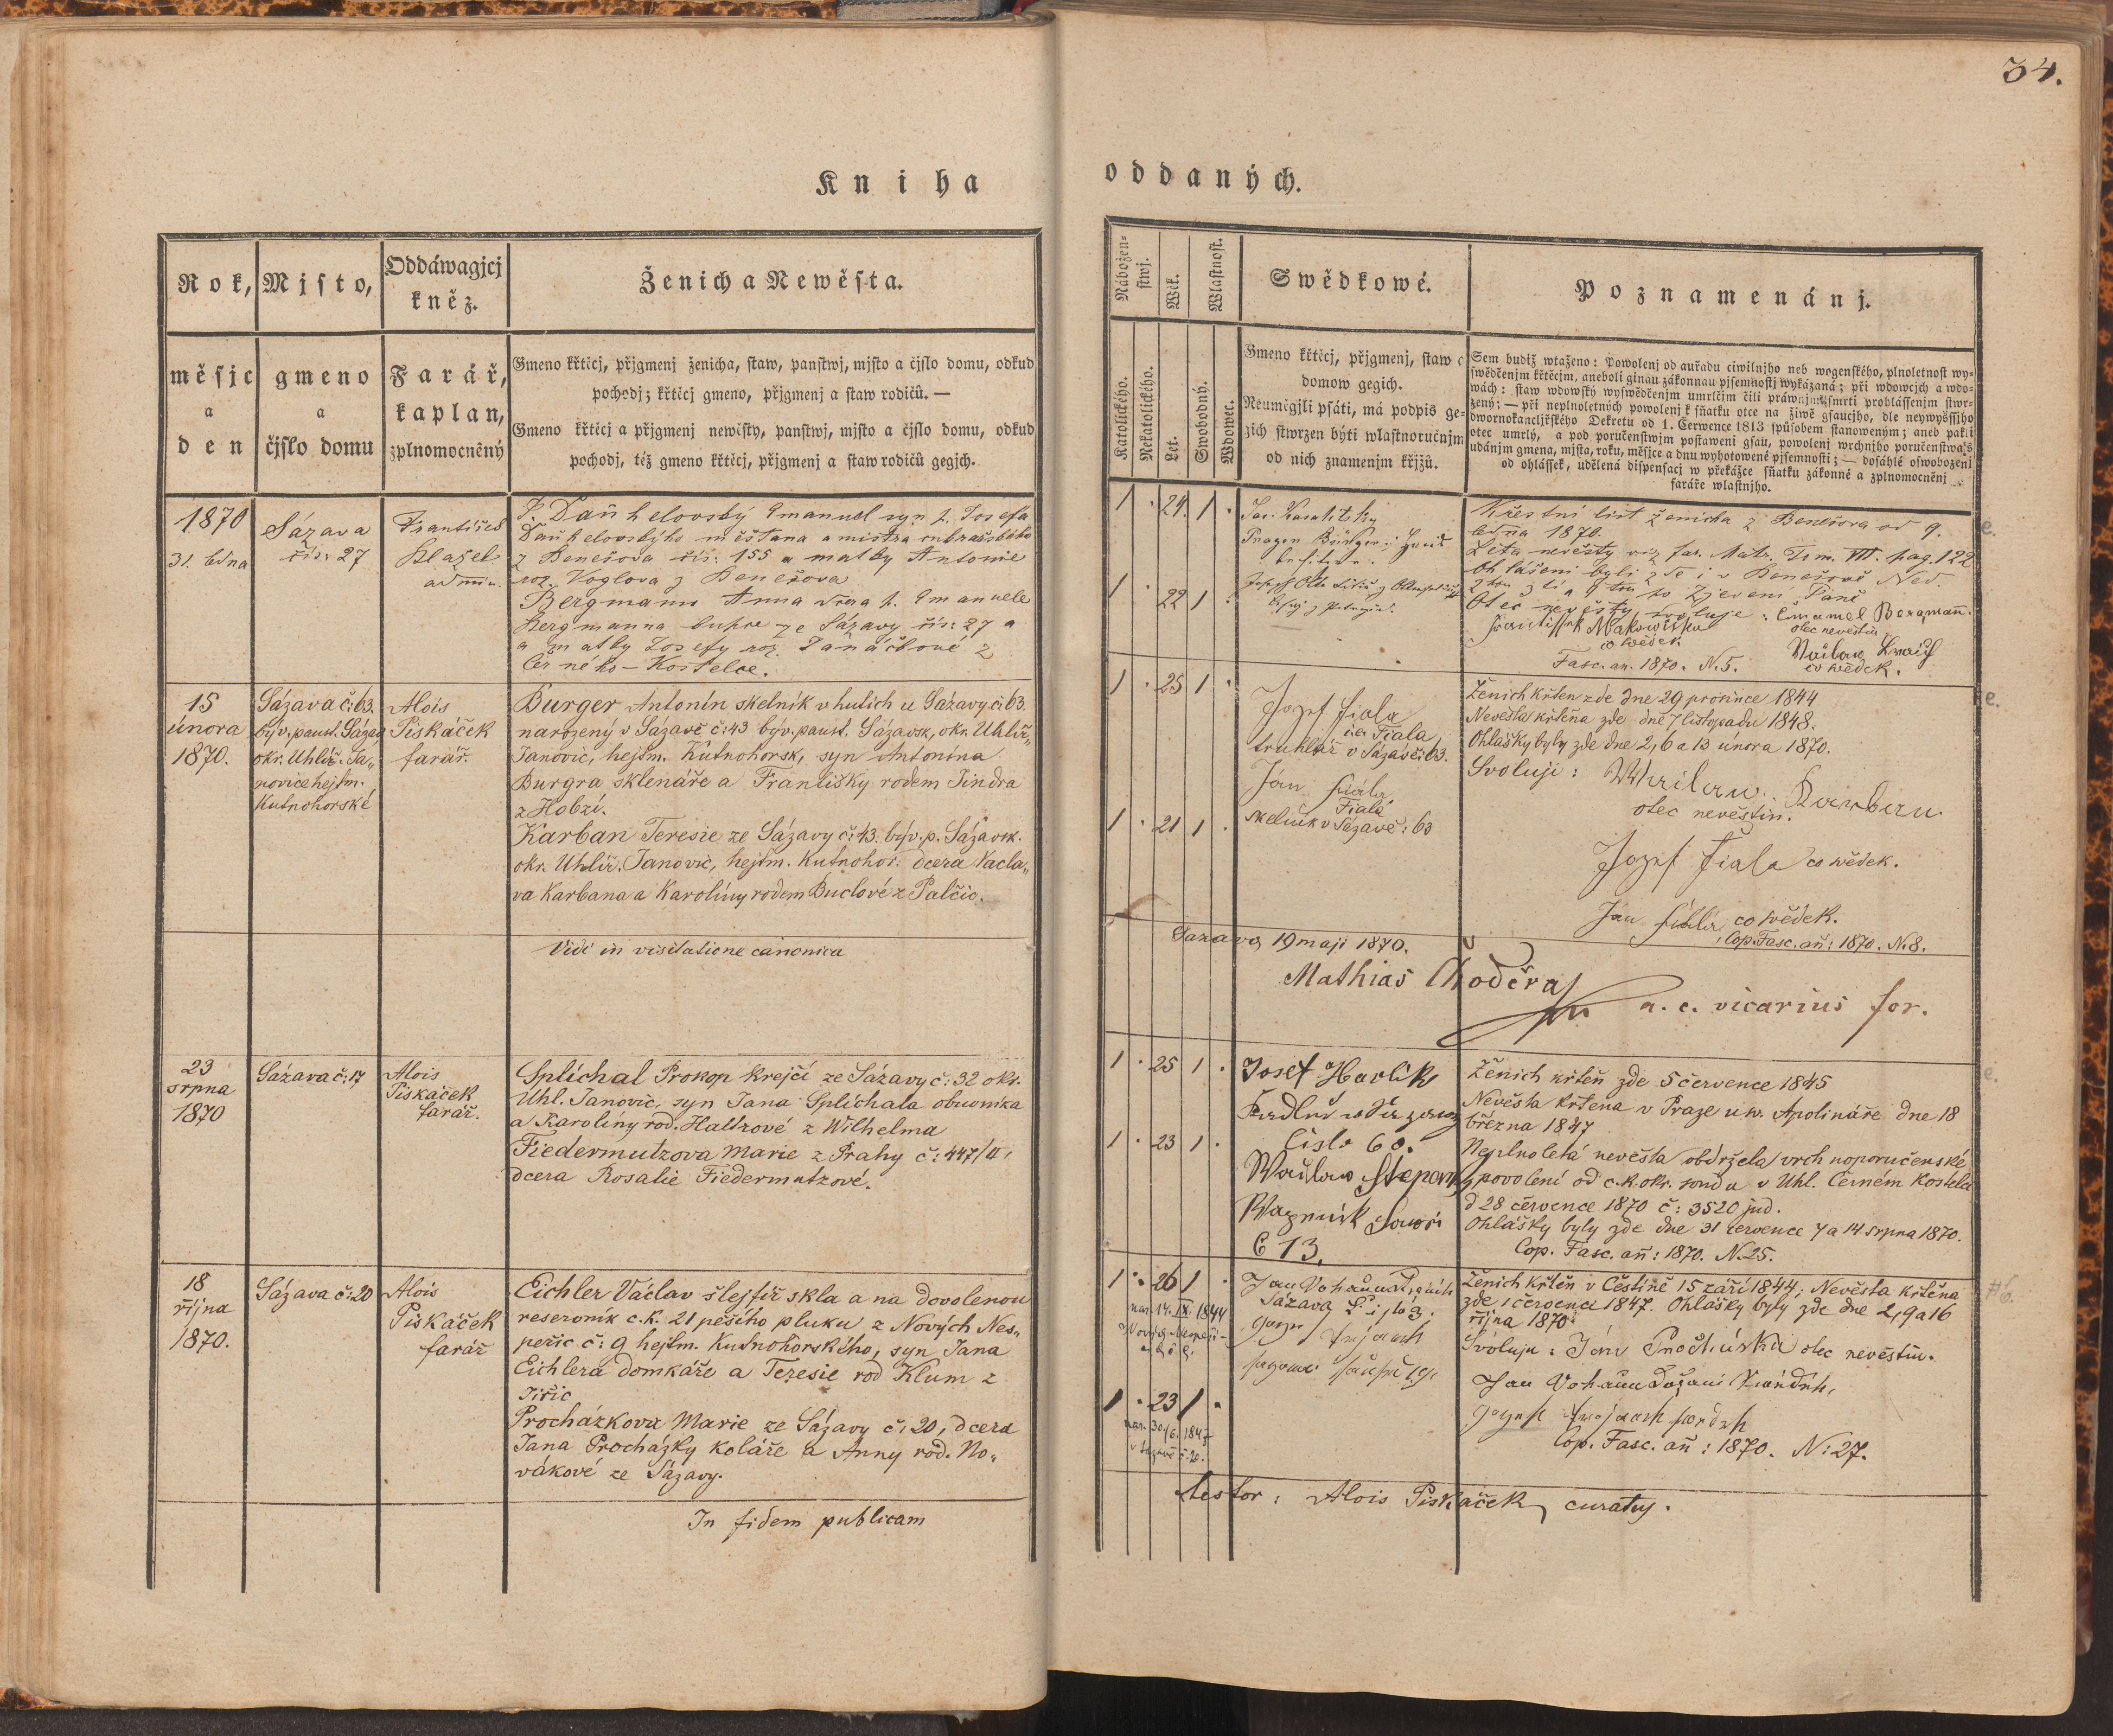 34.
Kniha
oddaných.
Rok,
měsjc
a
den
Mjsto,
gmeno
a
čjslo domu
Oddáwagjcj
kněz.
Farář,
kaplan,
zplnomocněný
Ženich a Newěsta.
Gmeno křticj, přjgmenj ženicha, staw, panstwj, mjsto a čjslo domu, odkud
pochodj; křticj gmeno, přjgmenj a staw rodičů. —
Gmeno křticj a přjgmenj newěsty, panstwj, mjsto a čjslo domu, odkud
pochodj, též gmeno křticj, přjgmenj a staw rodičů gegjch.
Nábožen-
stwj.
Katolického.
Nekatolického.
Wěk.
Let.
Wlastnost.
Swobodný.
Wdowec.
Swědkowé.
Gmeno křticj, přjgmenj, staw a
domow gegich.
Neumėgjli psáti, má podpis ge-
gich stwrzen býti wlastnoručnjm
od nich znamenjm křjžů.
Poznamenánj.
Sem budiž wtaženo: Powolenj od auřadu ciwilnjho neb wogenského, plnoletnost wy-
swědčenjm křticjm, aneboli ginau zákonnau pjsemnostj wykázaná; při wdowcjch a wdo-
wách: staw wdowský wyswědčenjm umrlčjm čili práwnjm smrti prohlássenjm stwr-
zený; — při neplnoletných powolenj k sňatku otce na žiwě gsaucjho, dle neywyššjho
dwornokancljřského Dekretu od 1. Čerwence 1813 spůsobem stanoweným; aneb pakli
otec umrlý, a pod poručenstwjm postaweni gsau, powolenj wrchnjho poručenstwa s
udánjm gmena, mjsta, roku, měsjce a dnu wyhotowené pjsemnosti; — dosáhlé oswobozenj
od ohlássek, udělená dispensacj w překážce sňatku zákonné a zplnomocněnj
faráře wlastnjho.
1870
31. ledna
Sázava
čís: 27
František
Blažek
admin.
P. Daňhelovský Emanuel syn p. Josefa
Daňhelovského měštana a mistra
z Benešova čís: 155 a matky Antonie
roz. Voglova z Benešova
Bergmann Anna dcera p. Emanuele
Bergmanna kupce ze Sázavy čís: 27 a
a matky Josefy roz. Panáčkové z
Černého-Kostelce.
1 . 24 1 .
1 . 22 1 .
Křestní list ženicha z Benešova od 9.
ledna 1870.
Léta nevěsty viz far. Matr. Tom. VII. pag. 122
Ohlášeni byli zde i v Benešově Ned.
po Zjevení Páně
Otec nevěsty svoluje: Emanuel Bergmann.
otec nevěstin
co wědek
co wědek.
Fasc. an. 1870. N. 5.
15
února
1870.
Sázava č: 63.
býv. panst. Sázav
okr. Uhlíř. Ja„
novice hejtm.
Kutnohorské
Alois
Piskáček
farář.
Burger Antonín skelník v hutích u Sázavy č: 63.
narozený v Sázavě č: 43 býv. panst. Sázavsk, okr. Uhlíř„
Janovic, hejtm. Kutnohorsk, syn Antonína
Burgra sklenáře a Františky rodem Jindra
z Hobzí.
Karban Teresie ze Sázavy č: 43. býv. p. Sázavsk.
okr. Uhlíř. Janovic, hejtm. Kutnohor. dcera Vacla„
va Karbana a Karolíny rodem Buclové z Palčic.
1 . 25 1 .
1 . 21 1 .
Jozef Fiala
Fiala
truhlář v Sázavě č: 63.
Jan Fiala
Fiala
skelník v Sázavě: 63
Ženich křten zde dne 29 prosince 1844
Nevěsta křtěna zde dně 7 listopadu 1848.
Ohlášky byly zde dne 2, 6 a 13 února 1870.
Svoluji: Karban
otec nevěstin.
Jozef Fiala co wědek.
Jan Fiala co wědek.
Cop. Fasc. añ: 1870. N. 8.
Vidi in visitatione canonica
Sazava 19 maji 1870.
Mathias
a. c. vicarius for.
23
srpna
1870
Sázava č: 17
Alois
Piskáček
farář.
Splíchal Prokop krejčí ze Sázavy č: 32 okr.
Uhl. Janovic, syn Jana Splíchala obuvníka
a Karolíny rod. Haltzové z Wilhelma
Fiedermutzova Marie z Prahy č: 447/II,
dcera Rosalie Fiedermutzové.
1 . 25 1 .
1 . 23 1 .
Josef Havlik
čislo 60.
Waclaw Stepan
13.
Ženich křtěn zde 5 července 1845
Nevěsta křtena v Praze u sv. Apolináře dne 18
března 1847
Neplnoletá nevěsta obdržela vrchnoporučenské
povolení od c. k. okr. soudu v Uhl. Černém Kostelci
d 28 července 1870 č: 3520 jud.
Ohlášky byly zde dne 31 července 7 a 14 srpna 1870.
Cop. Fasc. añ: 1870. N. 25.
18
října
1870.
Sázava č: 20
Alois
Piskáček
farář
Eichler Václav šlejfíř skla a na dovolenou
reservník c. k. 21 pěšího pluku z Nových Nes„
peřic č: 9 hejtm. Kutnohorského, syn Jana
Eichlera domkáře a Teresie rod Klum z
Jiřic
Procházkova Marie ze Sázavy č: 20, dcera
Jana Procházky koláře a Anny rod. No„
vákové ze Sázavy.
1 . 26 1 .
nar. 14. IX. 1844
1 . 23 1 .
nar. 30/6. 1847
v Sázavě č. 20.
Sázava
Ženich křtěn v Čestíně 15 září 1844; Nevěsta křtěna
zde 1 července 1847. Ohlášky byly zde dne 2, 9 a 16
října 1870.
Svoluju: Jan otec nevěstin.
Cop. Fasc. añ: 1870. N: 27.
In fidem publicam
testor: Alois Piskáček, curatus.